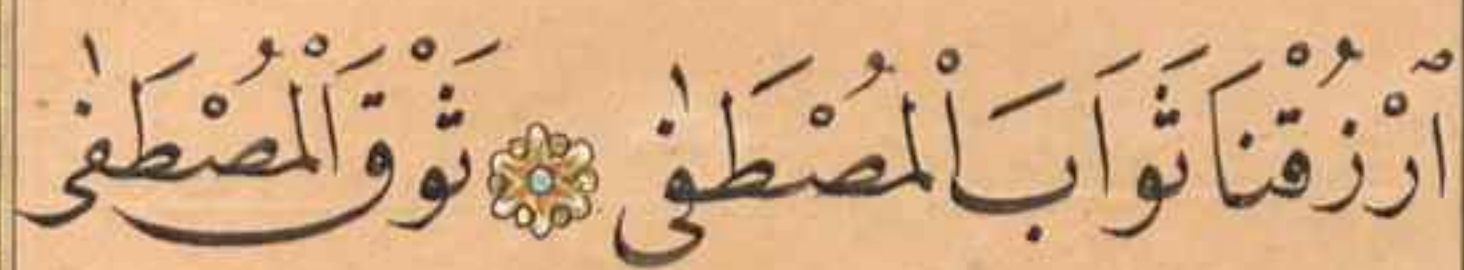 ٱرْزُقْنَا ثَوَابَ الْمُصْطَفٰى ۞ تَوْقَ الْمُصْطَفٰى